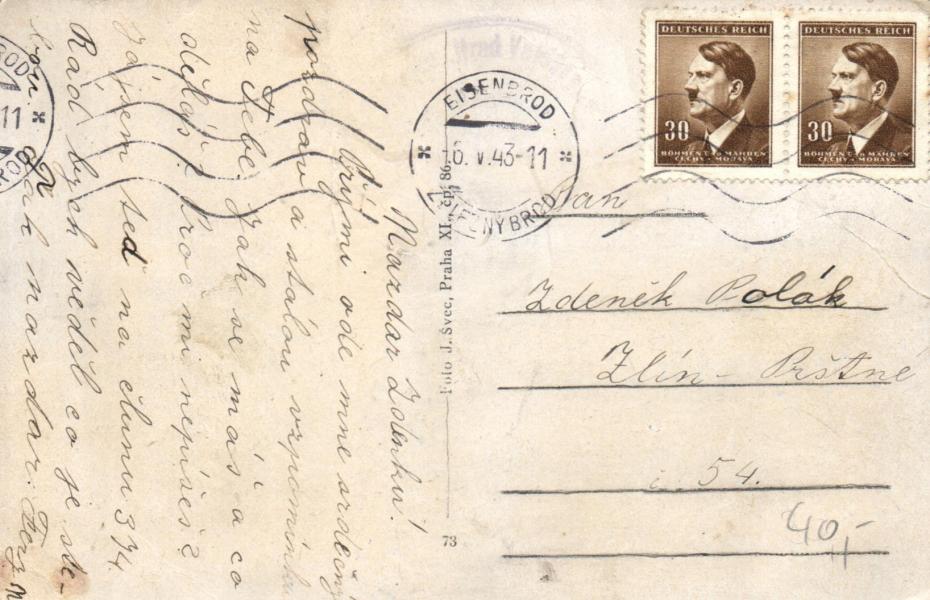 Nazdar Zdenku!
Přijmi ode mne srdečný
pozdrav a stálou vzpomínku
na Tebe. Jak se máš a co
děláš? Proč mi nepíšeš?
Já jsem teď na člunu 374.
Rád bych věděl co je
nazdar.
Foto J. Švec, Praha XI., čp. 86
73
EISENBROD
6. V. 43-11
ŽELEZNÝ BROD
DEUTSCHES REICH
30
BÖHMEN U. MÄHREN
ČECHY-MORAVA
DEUTSCHES REICH
30
BÖHMEN U. MÄHREN
ČECHY-MORAVA
Pan
Zdeněk Polák
Zlín - Prštné
č. 54.
40,-